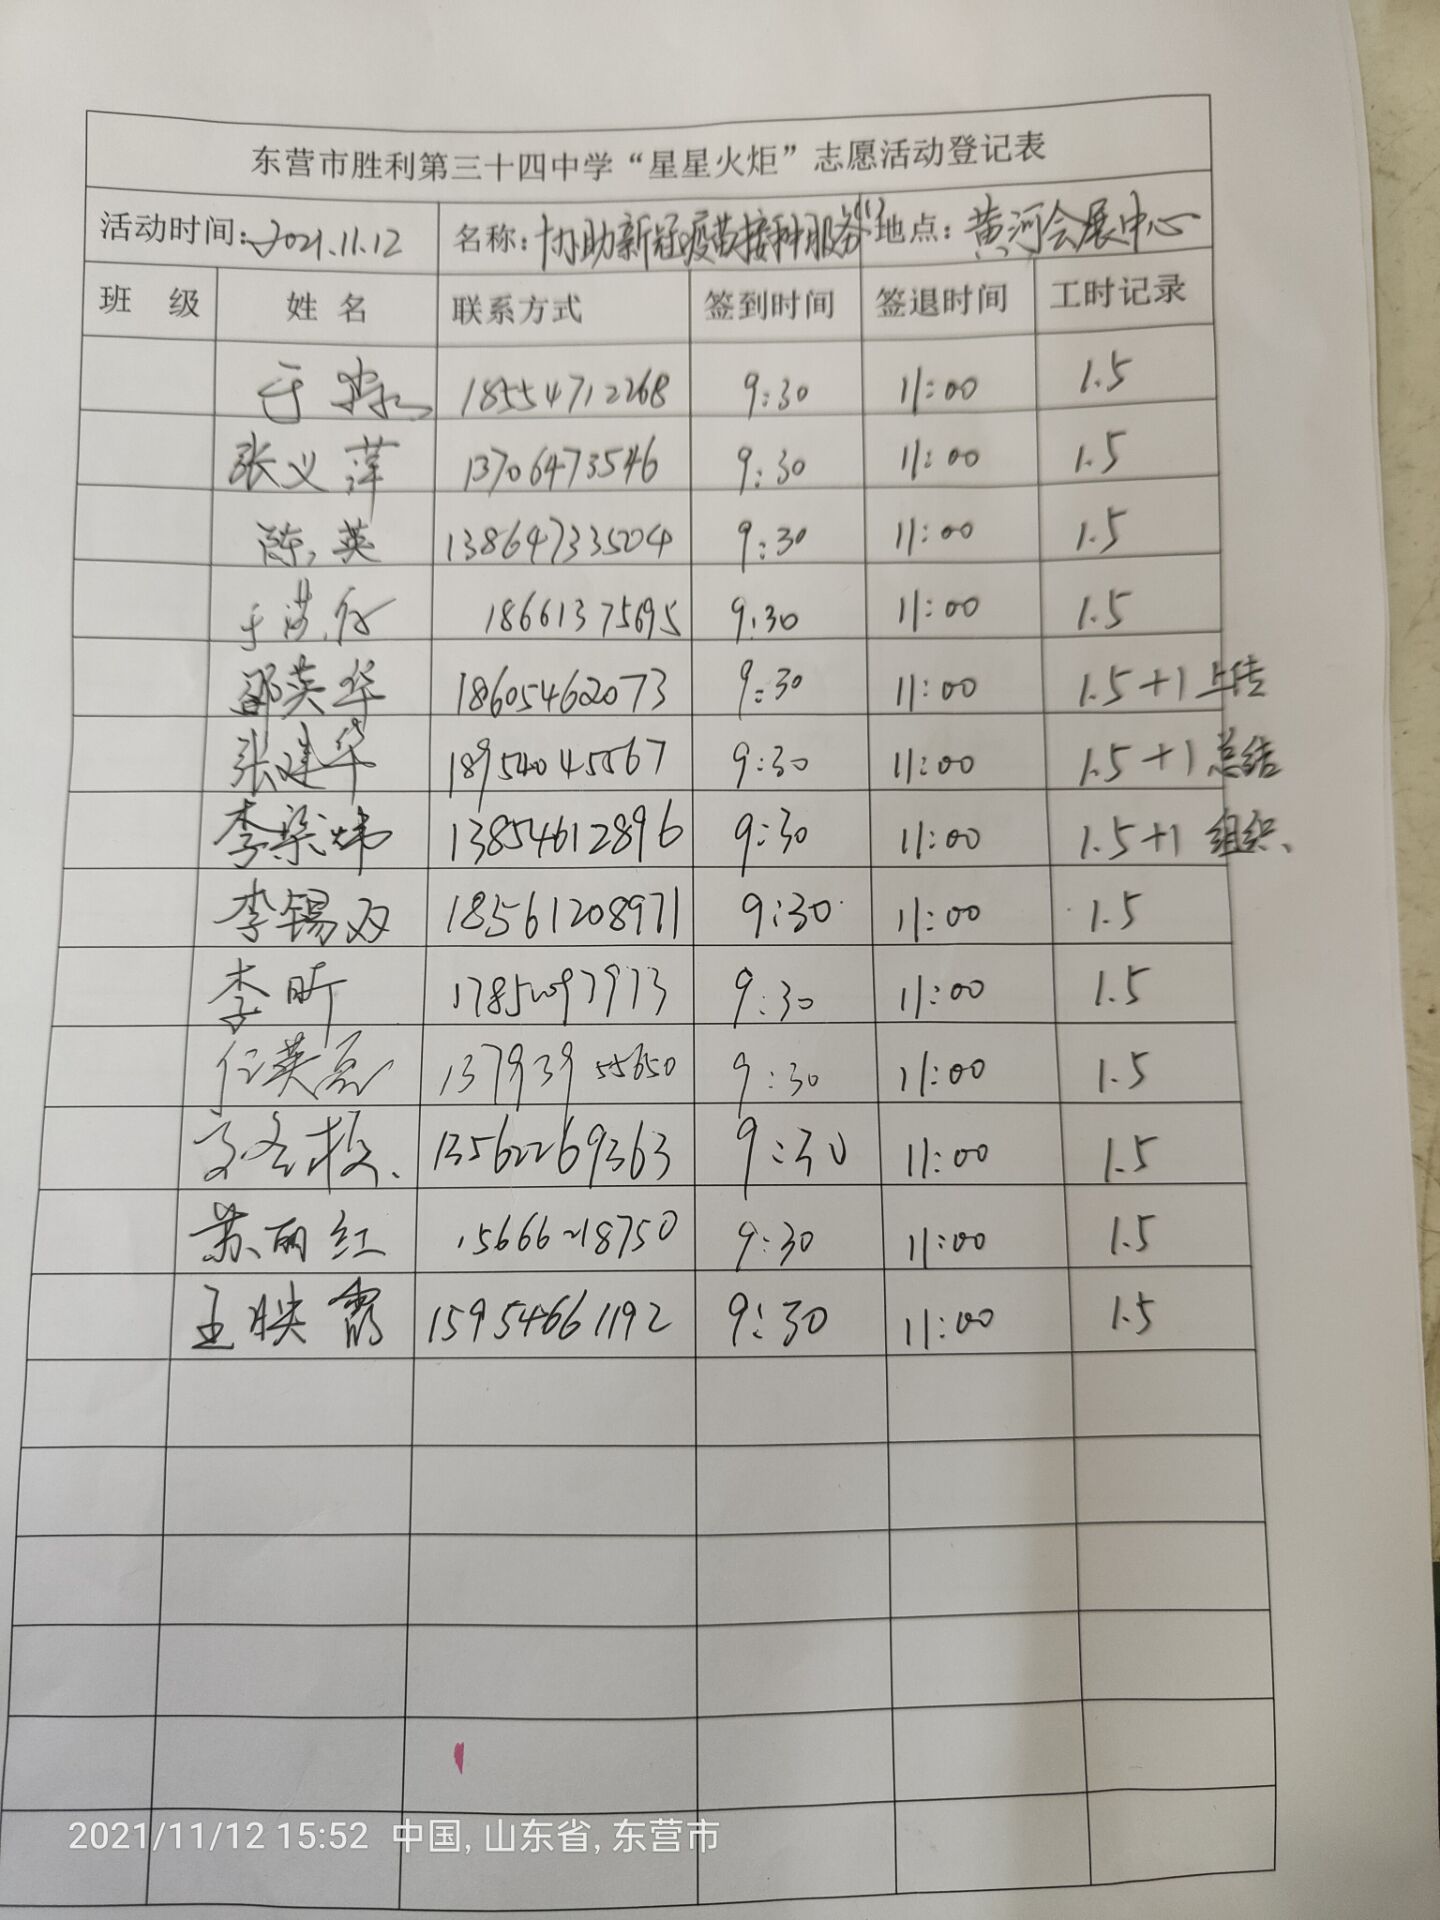 东营市胜利第三十四中学“星星火炬”志愿活动登记表
活动时间:2021.11.12 名称:协助新冠疫苗接种服务(1) 地点:黄河会展中心
班 级 姓 名 联系方式 签到时间 签退时间 工时记录
于 18554712268 9:30 11:00 1.5
张义萍 13706473546 9:30 11:00 1.5
陈英 13864733504 9:30 11:00 1.5
于 18661375695 9:30 11:00 1.5
邵英华 18605462073 9:30 11:00 1.5+1 上传
张建华 18954045567 9:30 11:00 1.5+1 总结
李梁炜 13854612896 9:30 11:00 1.5+1 组织、
李锡双 18561208971 9:30 11:00 1.5
李昕 17852097973 9:30 11:00 1.5
任英亮 13793955650 9:30 11:00 1.5
13562269363 9:30 11:00 1.5
苏丽红 15666218750 9:30 11:00 1.5
王映霞 15954661192 9:30 11:00 1.5
2021/11/12 15:52 中国, 山东省, 东营市